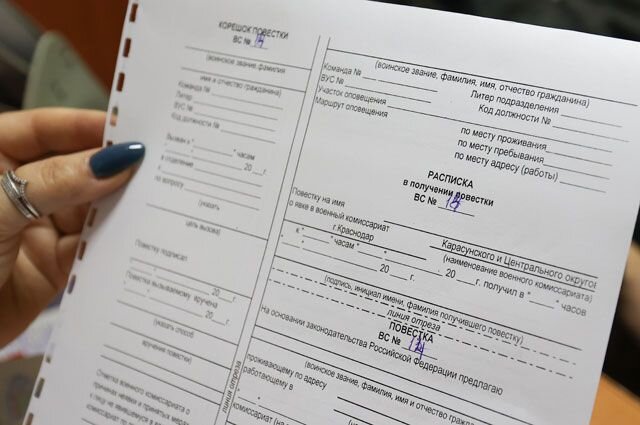 КОРЕШОК ПОВЕСТКИ
ВС №
(воинское звание, фамилия
имя и отчество гражданина)
Команда №
Литер
ВУС №
Код должности №
Вызван к " " часам
" " 20 г.
в отделение
по вопросу
(указать
цель вызова)
Повестку подписал
" " 20 г.
Повестка вызываемому вручена
" " 20 г.
(указать способ
вручения повестки)
Отметка военного комиссариата о
причинах неявки и принятых мерах
к лицу не явившемуся в
комиссариат по
линия отреза
(воинское звание, фамилия, имя, отчество гражданина)
Команда №
ВУС №
Участок оповещения
Маршрут оповещения
Литер подразделения
Код должности №
по месту проживания
по месту пребывания
по месту адресу (работы)
РАСПИСКА
в получении повестки
ВС №
Повестку на имя
о явке в военный комиссариат
г.Краснодар
Карасунского и Центрального округов
(наименование военного комиссариата)
к " " часам "
" " 20 г. " " 20 г. получил в " " часов
(подпись, инициал имени, фамилия получившего повестку)
линия отреза
ПОВЕСТКА
ВС №
На основании законодательства Российской Федерации предлагаю
(воинское звание, фамилия, имя, отчество гражданина)
проживающему по адресу
работающему в
(воинское звание, фамилия, имя и отчество гражданина)
комиссариат (на